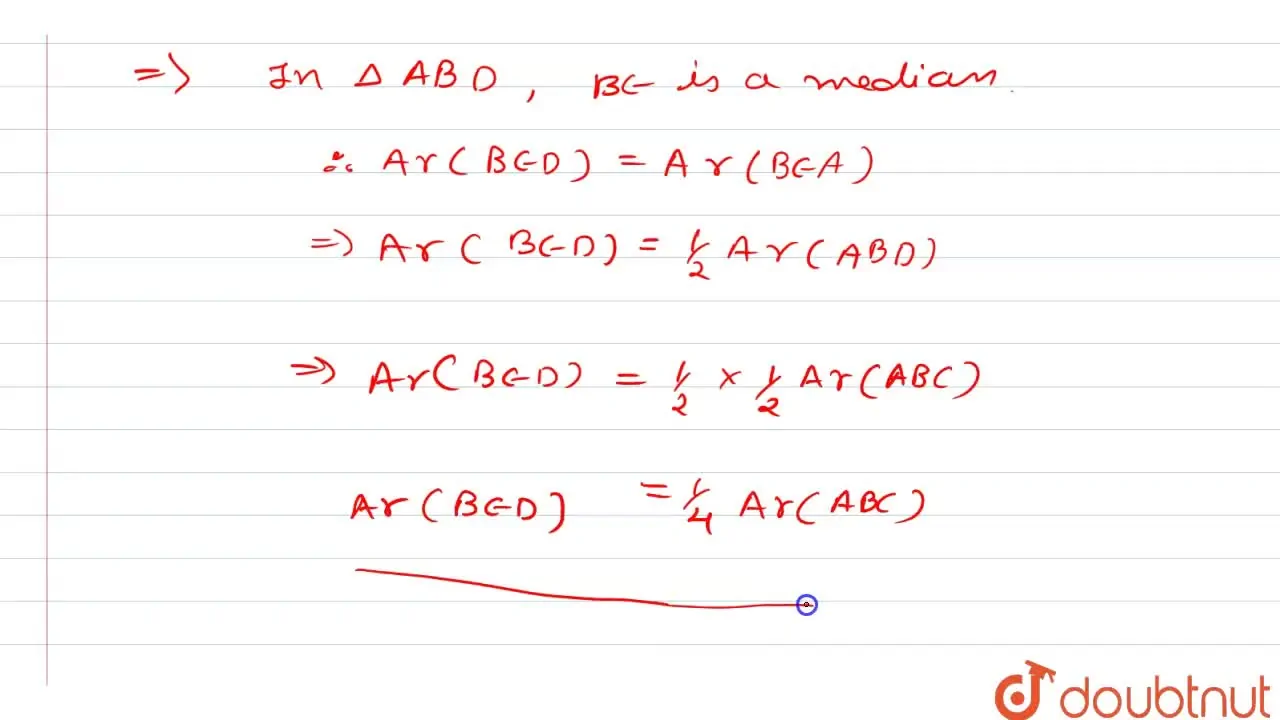 => In Δ ABD, BE is a median.
∴ Ar(BED) = Ar(BEA)
=> Ar(BED) = 1/2 Ar(ABD)
=> Ar(BED) = 1/2 × 1/2 Ar(ABC)
Ar(BED) = 1/4 Ar(ABC)
doubtnut